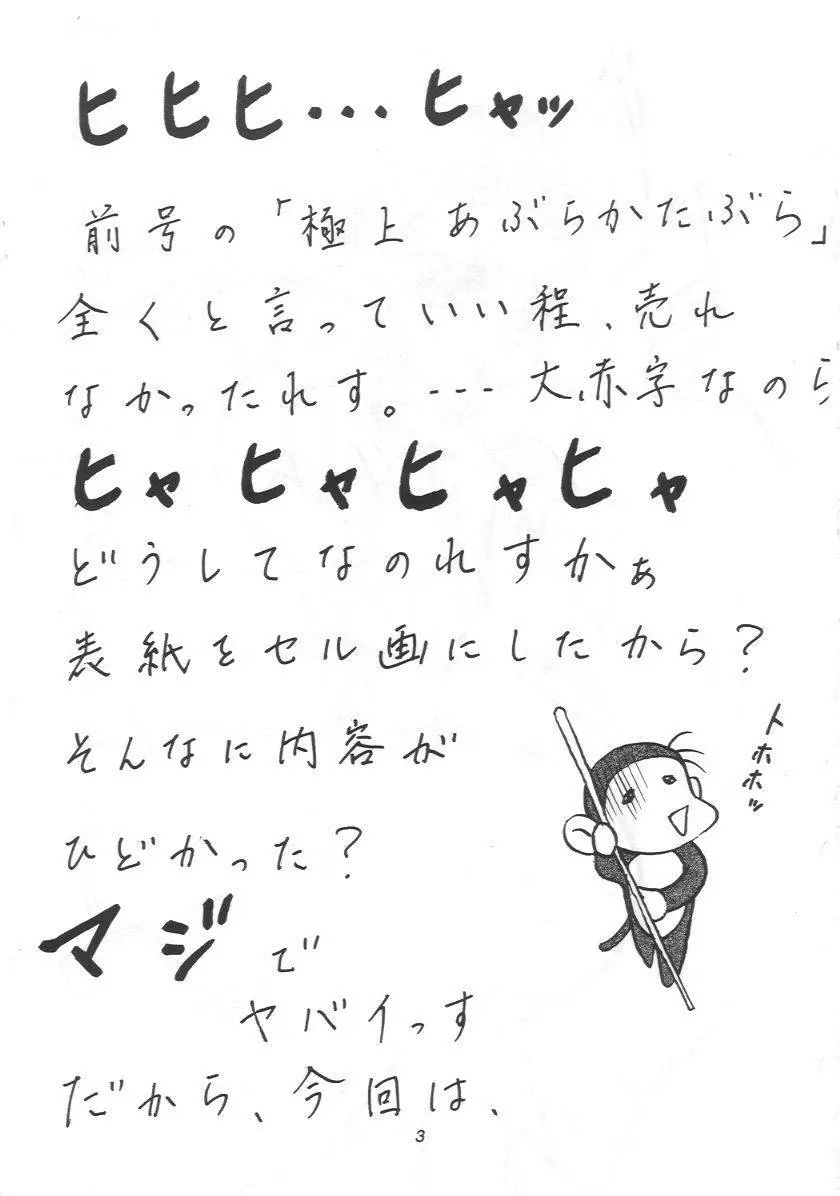 ヒヒヒ・・・ヒャッ
前号の「極上 あぶらかたぶら」
全くと言っていい程、売れ
なかったれす。--- 大赤字なのら
ヒャヒャヒャヒャ
どうしてなのれすかぁ
表紙をセル画にしたから？
そんなに内容が
ひどかった？
トホホッ
マジで
ヤバイっす
だから、今回は、
3